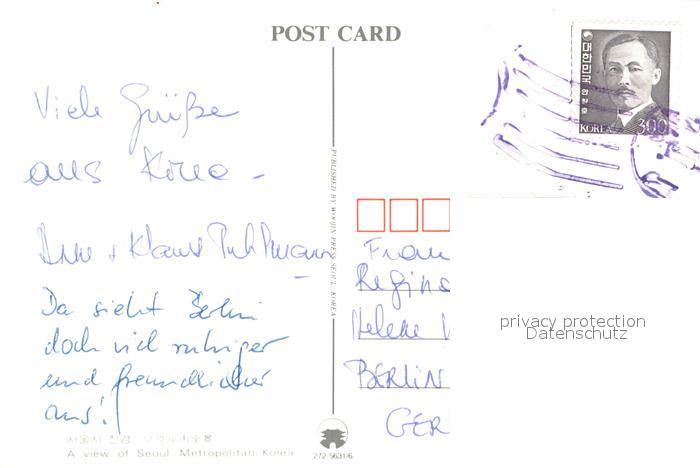 POST CARD
대한민국
안창호
KOREA 300
Viele Grüße
aus Korea -
+ Klaus
Da sieht Berlin
doch viel ruhiger
und freundlicher
aus!
PUBLISHED BY woogin PRESS SEOUL, KOREA
Frau
Regina
Helene
BERLIN
GER
privacy protection
Datenschutz
서울시 전경
A view of Seoul Metropolitan, Korea
272-5631/6